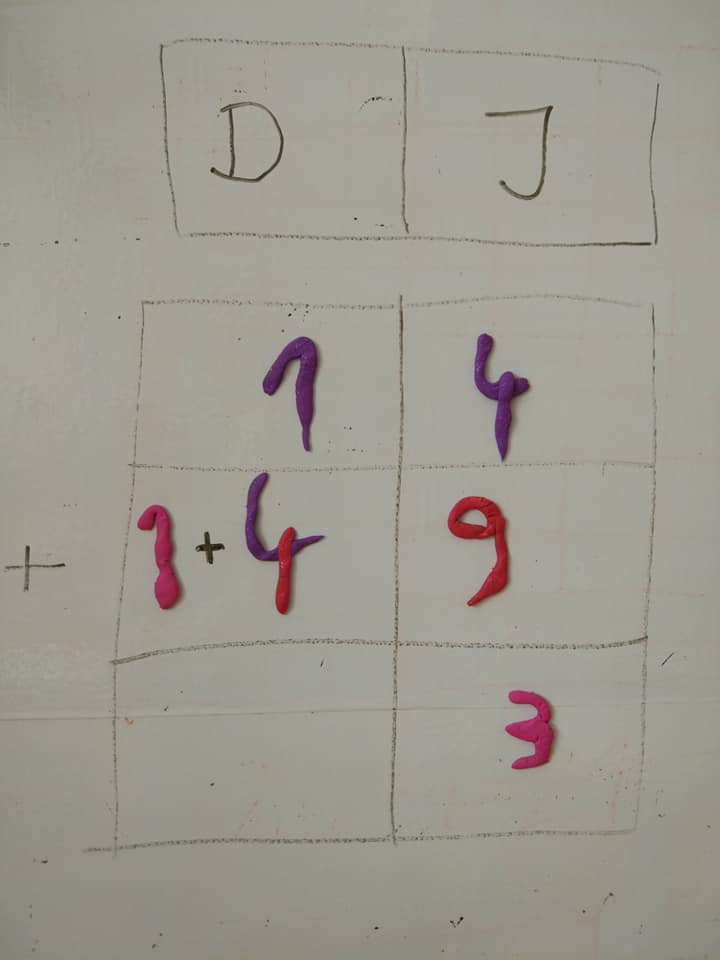 D J
1 4
+ 1 + 4 9
3